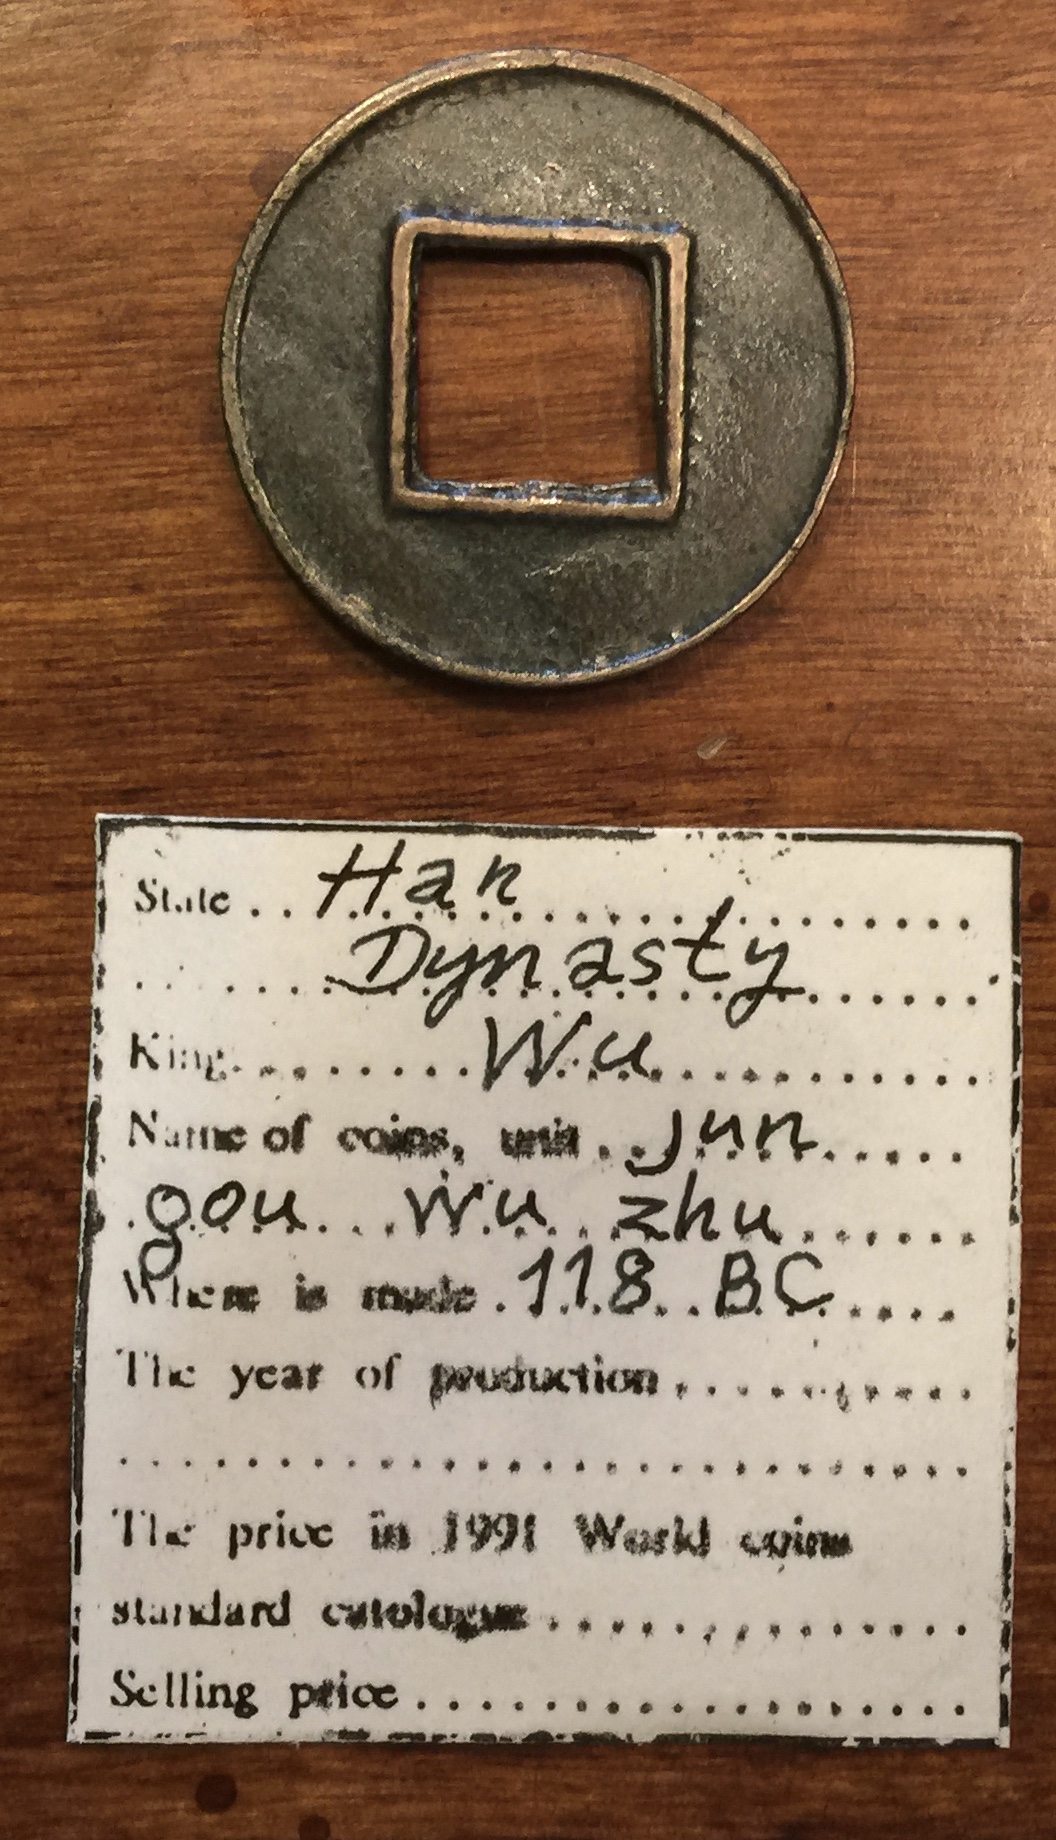 State .. Han ..........
..... Dynasty ........
King .......... Wu ..........
Name of coins, unit .. jun .....
. gou ... wu .. zhu ......
Where is made . 118 .. BC ....
The year of production ..........
..............................
The price in 1991 World coins
standard catologue ..............
Selling price ..................